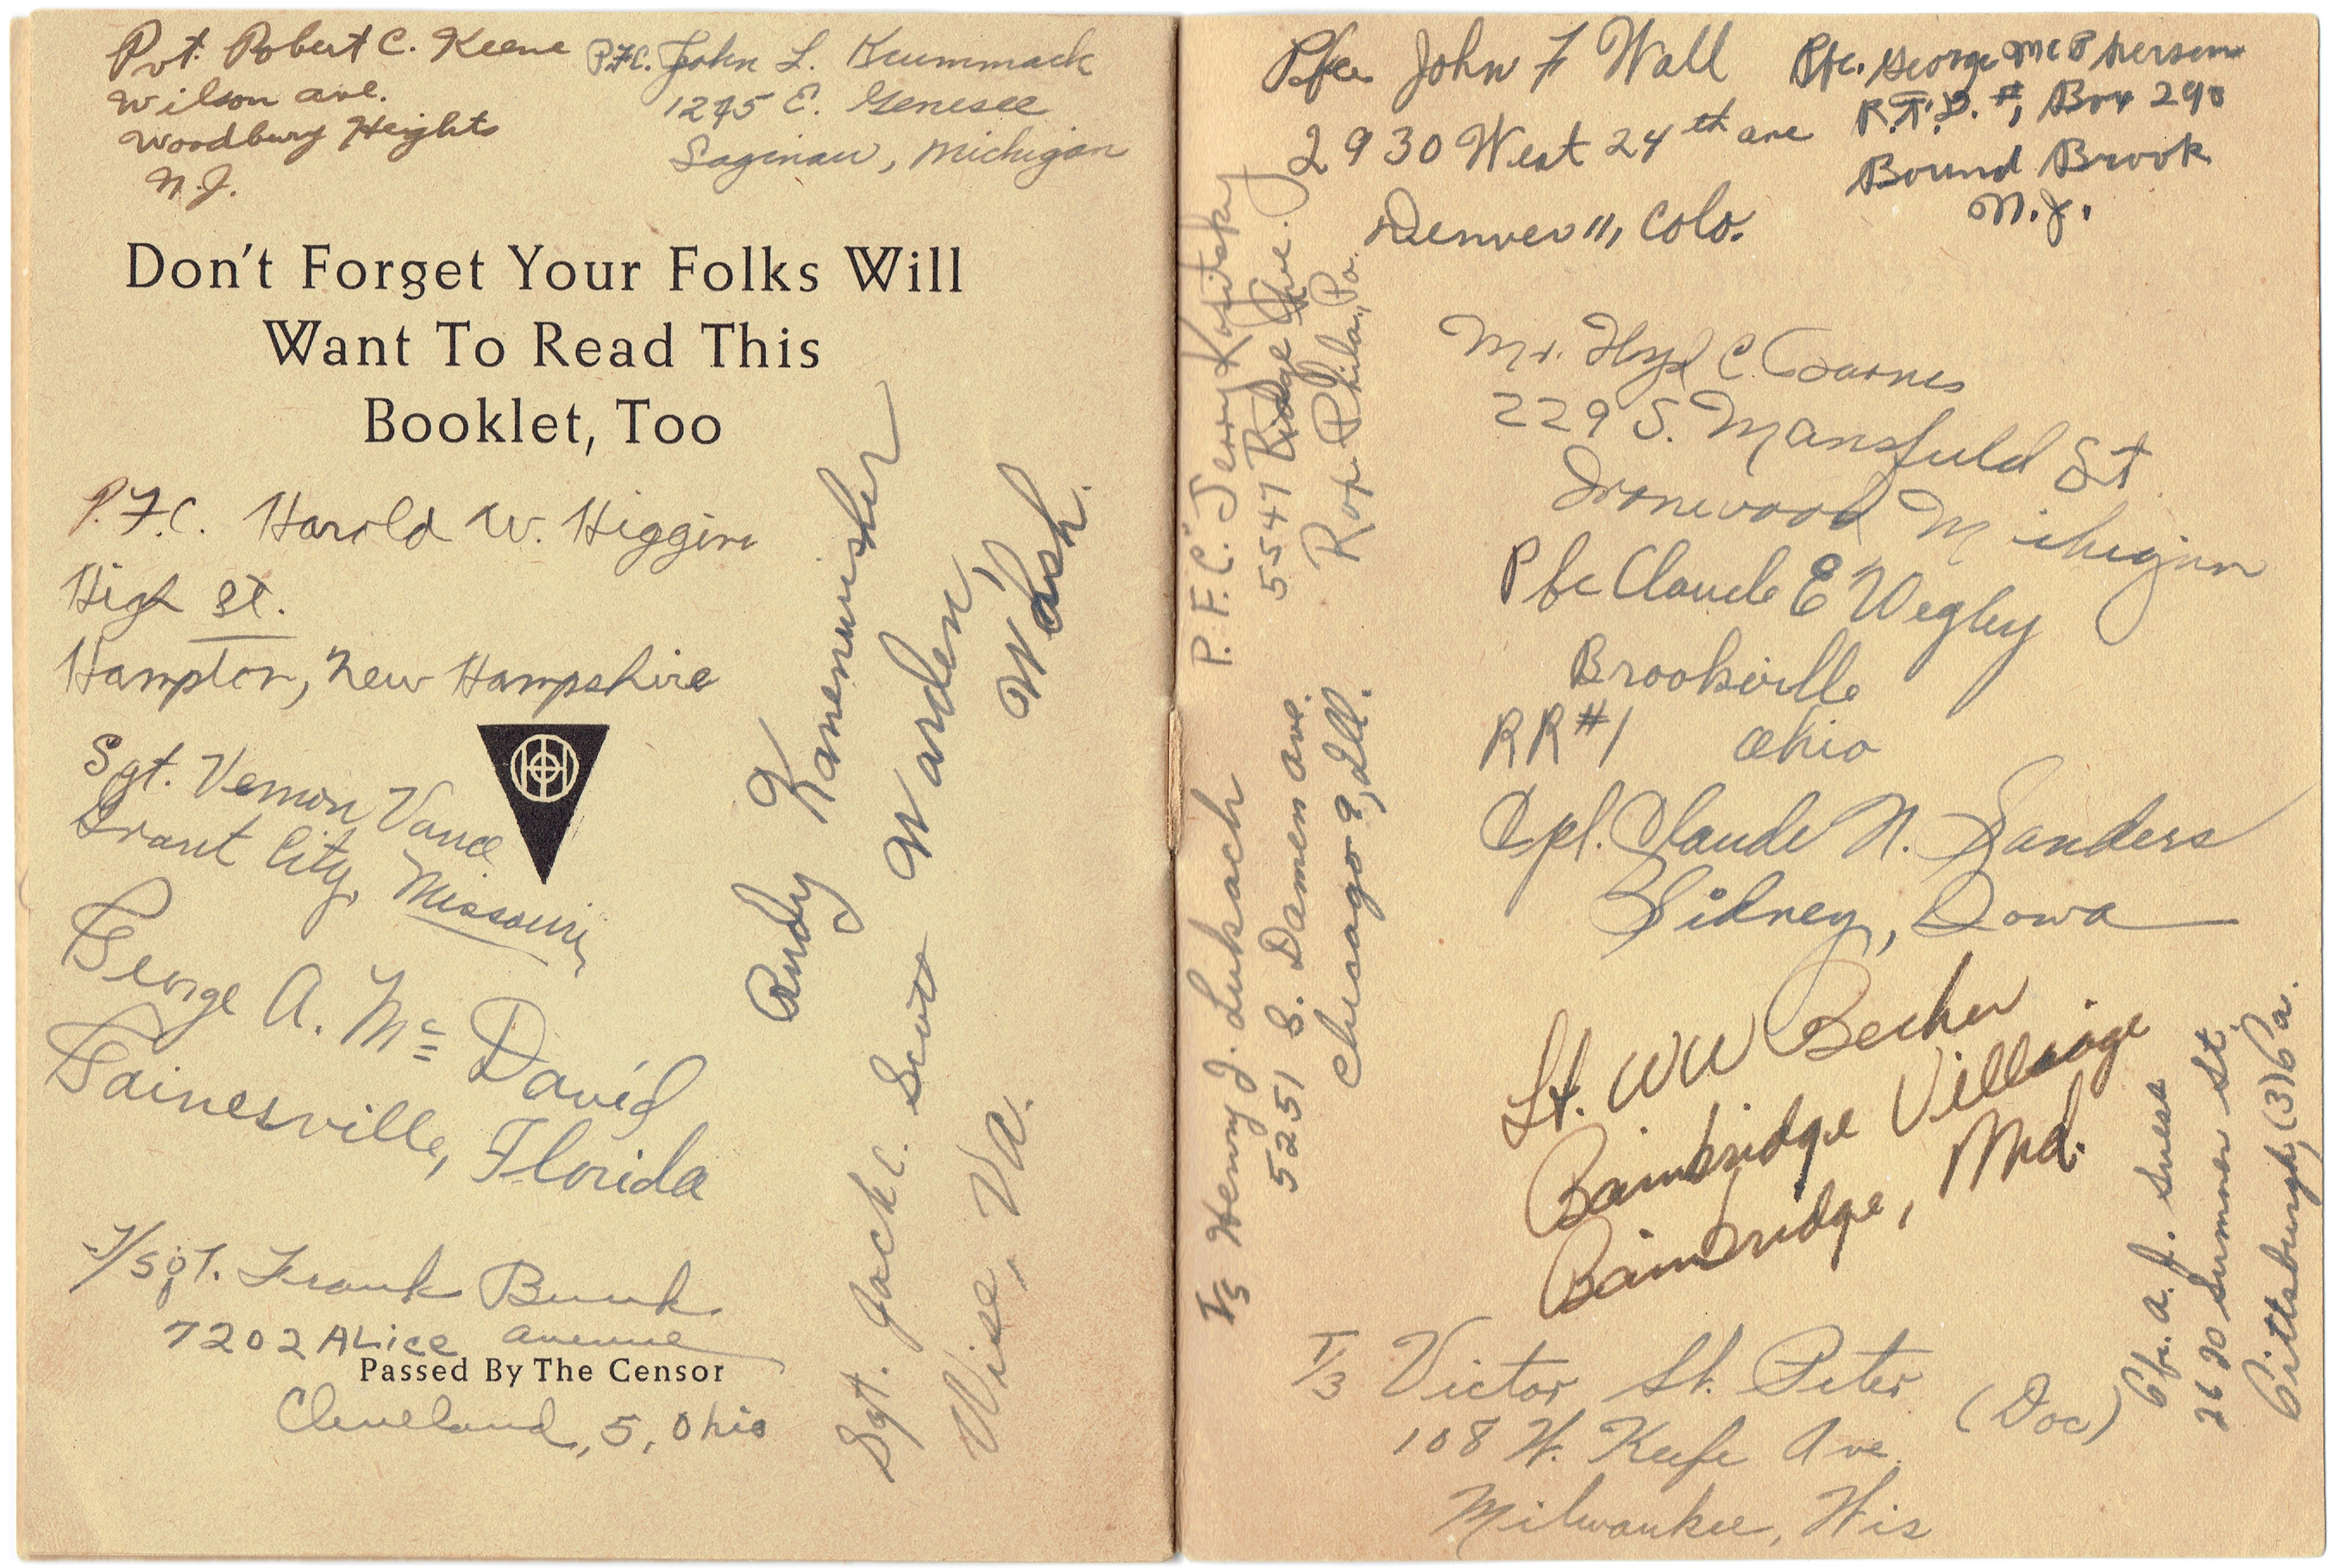 Pvt. Robert C. Keene
Wilson ave.
Woodbury Heights
N.J.
P.F.C. John L. Krummack
1245 E. Genesee
Saginaw, Michigan
Don't Forget Your Folks Will
Want To Read This
Booklet, Too
P.F.C. Harold W. Higgins
High St.
Hampton, New Hampshire
Sgt. Vernon Vance
Grant City, Missouri
George A. Mc David
Gainesville, Florida
T/Sgt. Frank Bunk
7202 ALice avenue
Passed By The Censor
Cleveland, 5, Ohio
Rudy
Warden,
Wash.
Sgt. Jack C.
Wise, Va.
Pfc. John F Wall
2930 West 24th ave
Denver 11, Colo.
Pfc. George McPherson
R.F.D. #1 Box 290
Bound Brook
N.J.
P.F.C. Jerry
5547 Ridge Ave.
Rox. Phila., Pa.
Mr. C.
229 S. Mansfield St.
Ironwood Michigan
Pfc Claude E Wegley
Brookville
RR#1 Ohio
Cpl. Claude N. Sanders
Sidney, Iowa
T/5 Henry J. Luksach
5251 S. Damen ave.
Chicago 9, Ill.
Lt. WW Becker
Bainbridge Village
Bainbridge, Md.
T/3 Victor St. Peter (Doc)
108 W. Keefe Ave.
Milwaukee, Wis
Pfc. A. J. Suess
2620 Sumner St.
Pittsburgh, (3) Pa.